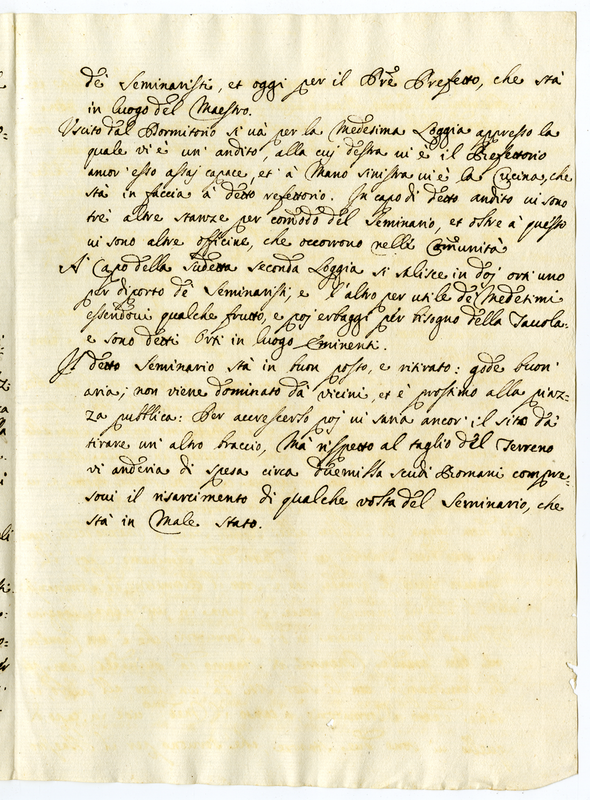 de' Seminaristi, et oggi per il Pre Prefetto, che stà
in luogo del Maestro.
Uscito dal Dormitorio si và per la medesima Loggia appresso la
quale vi è un' andito, alla cuj destra vi è il Refettorio
ancor' esso assaj capace, et à mano sinistra vi è la Cucina, che
stà in faccia à detto refettorio. In capo di detto andito vi sono
trè altre stanze per comodo del Seminario, et oltre à questo
vi sono altre officine, che occorrono nelle Comunità
A' Capo della sudetta seconda Loggia si salisce in doj orti uno
per diporto de' Seminaristi, e l'altro per utile de' Medesimi
essendovi qualche frutto, e poj erbaggi per bisogno della Tavola:
e sono detti Orti in luogo eminenti.
Il detto Seminario stà in buon posto, e ritirato: gode buon'
aria; non viene dominato da' vicini, et è prossimo alla piaz=
za pubblica: Per accrescerlo poj vi saria ancor' il sito da
tirare un' altro braccio, mà rispetto al taglio del Terreno
vi anderia di spesa circa duemilla scudi Romani compre=
sovi il risarcimento di qualche volta del Seminario, che
stà in male stato.